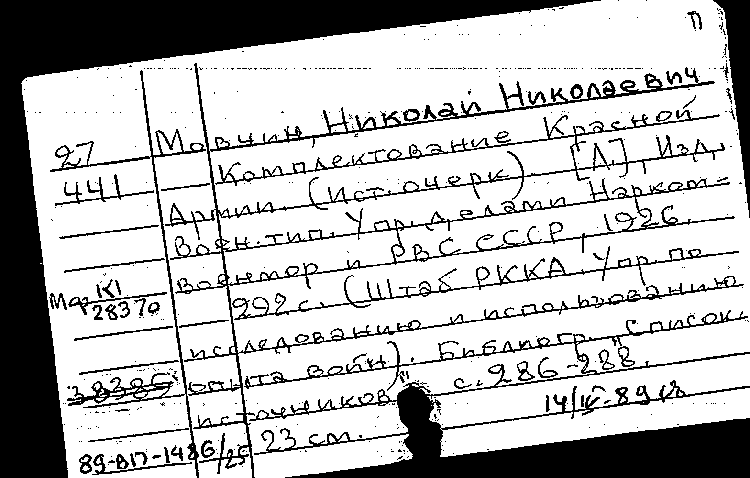 П
27 Мовчин, Николай Николаевич
441 Комплектование Красной
Армии. (Ист. очерк). [Л.], Изд.
Воен. тип. Упр. делами Нарком-
военмор и РВС СССР, 1926.
292 с. (Штаб РККА. Упр. по
28370
исследованию и использованию
опыта войн). Библиогр. "Список.
38385
источников" с. 286-288.
14/IV-89
89-ВП-1486/25 23 см.